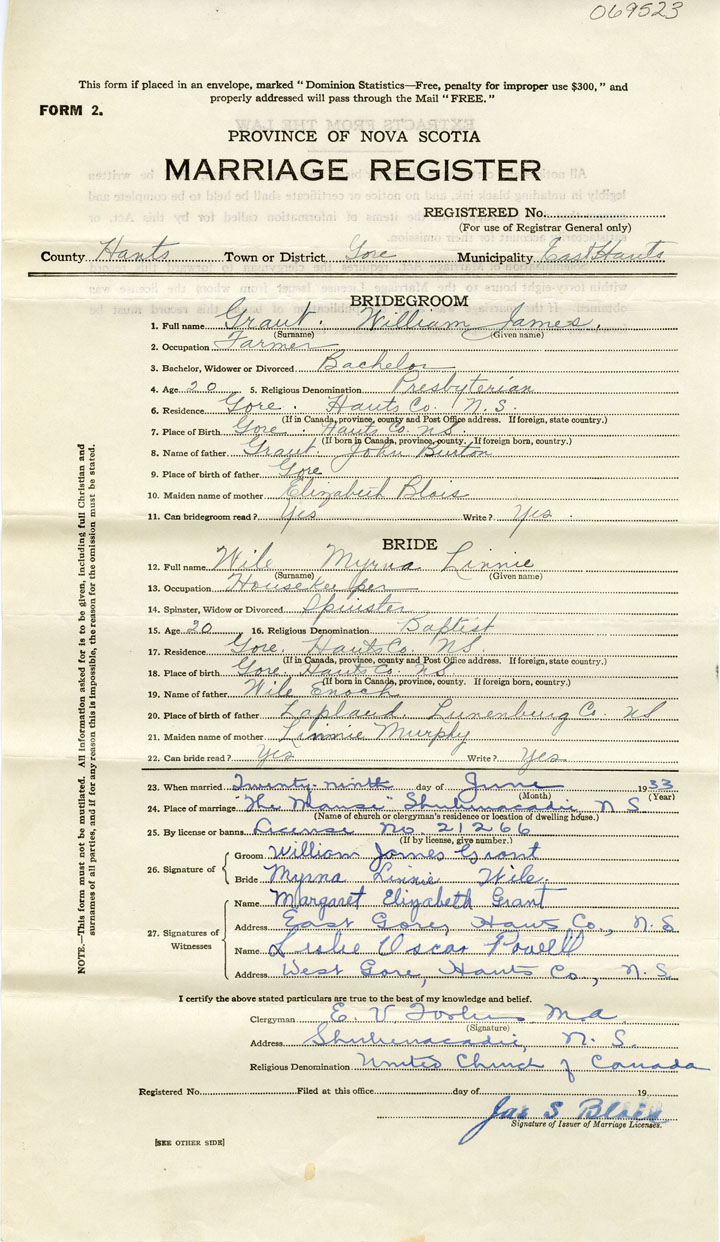 069523
This form if placed in an envelope, marked "Dominion Statistics—Free, penalty for improper use $300," and
properly addressed will pass through the Mail "FREE."
FORM 2.
PROVINCE OF NOVA SCOTIA
MARRIAGE REGISTER
REGISTERED No.
(For use of Registrar General only)
County Hants Town or District Gore Municipality East Hants
BRIDEGROOM
1. Full name Grant. William James.
(Surname) (Given name)
2. Occupation Farmer
3. Bachelor, Widower or Divorced Bachelor
4. Age 20 5. Religious Denomination Presbyterian
6. Residence Gore. Hants Co. N.S.
(If in Canada, province, county and Post Office address. If foreign, state country.)
7. Place of Birth Gore. Hants Co. N.S.
(If born in Canada, province, county. If foreign born, country.)
8. Name of father Grant. John Burton
9. Place of birth of father Gore
10. Maiden name of mother Elizabeth Blois
11. Can bridegroom read? Yes Write? Yes.
BRIDE
12. Full name Wile Myrna Linnie
(Surname) (Given name)
13. Occupation Housekeeper
14. Spinster, Widow or Divorced Spinster
15. Age 20 16. Religious Denomination Baptist
17. Residence Gore. Hants Co. NS.
(If in Canada, province, county and Post Office address. If foreign, state country.)
18. Place of birth Gore. Hants Co. NS.
(If born in Canada, province, county. If foreign born, country.)
19. Name of father Wile Enoch
20. Place of birth of father Lapland Lunenburg Co. NS
21. Maiden name of mother Linnie Murphy
22. Can bride read? Yes Write? Yes.
23. When married Twenty-ninth day of June 1933
(Month) (Year)
24. Place of marriage "The Manse" Shubenacadie, N S
(Name of church or clergyman's residence or location of dwelling house.)
25. By license or banns License No. 21266
(If by license, give number.)
26. Signature of
Groom William James Grant
Bride Myrna Linnie Wile.
27. Signatures of Witnesses
Name Margaret Elizabeth Grant
Address East Gore, Hants Co., N.S.
Name Leslie Oscar Powell
Address West Gore, Hants Co., N.S.
I certify the above stated particulars are true to the best of my knowledge and belief.
Clergyman E. V. M.A.
(Signature)
Address Shubenacadie, N.S.
Religious Denomination United Church of Canada
Registered No. Filed at this office day of 19
Jas S Blois
Signature of Issuer of Marriage Licenses.
[SEE OTHER SIDE]
NOTE.—This form must not be mutilated. All information asked for is to be given, including full Christian and
surnames of all parties, and if for any reason this is impossible, the reason for the omission must be stated.